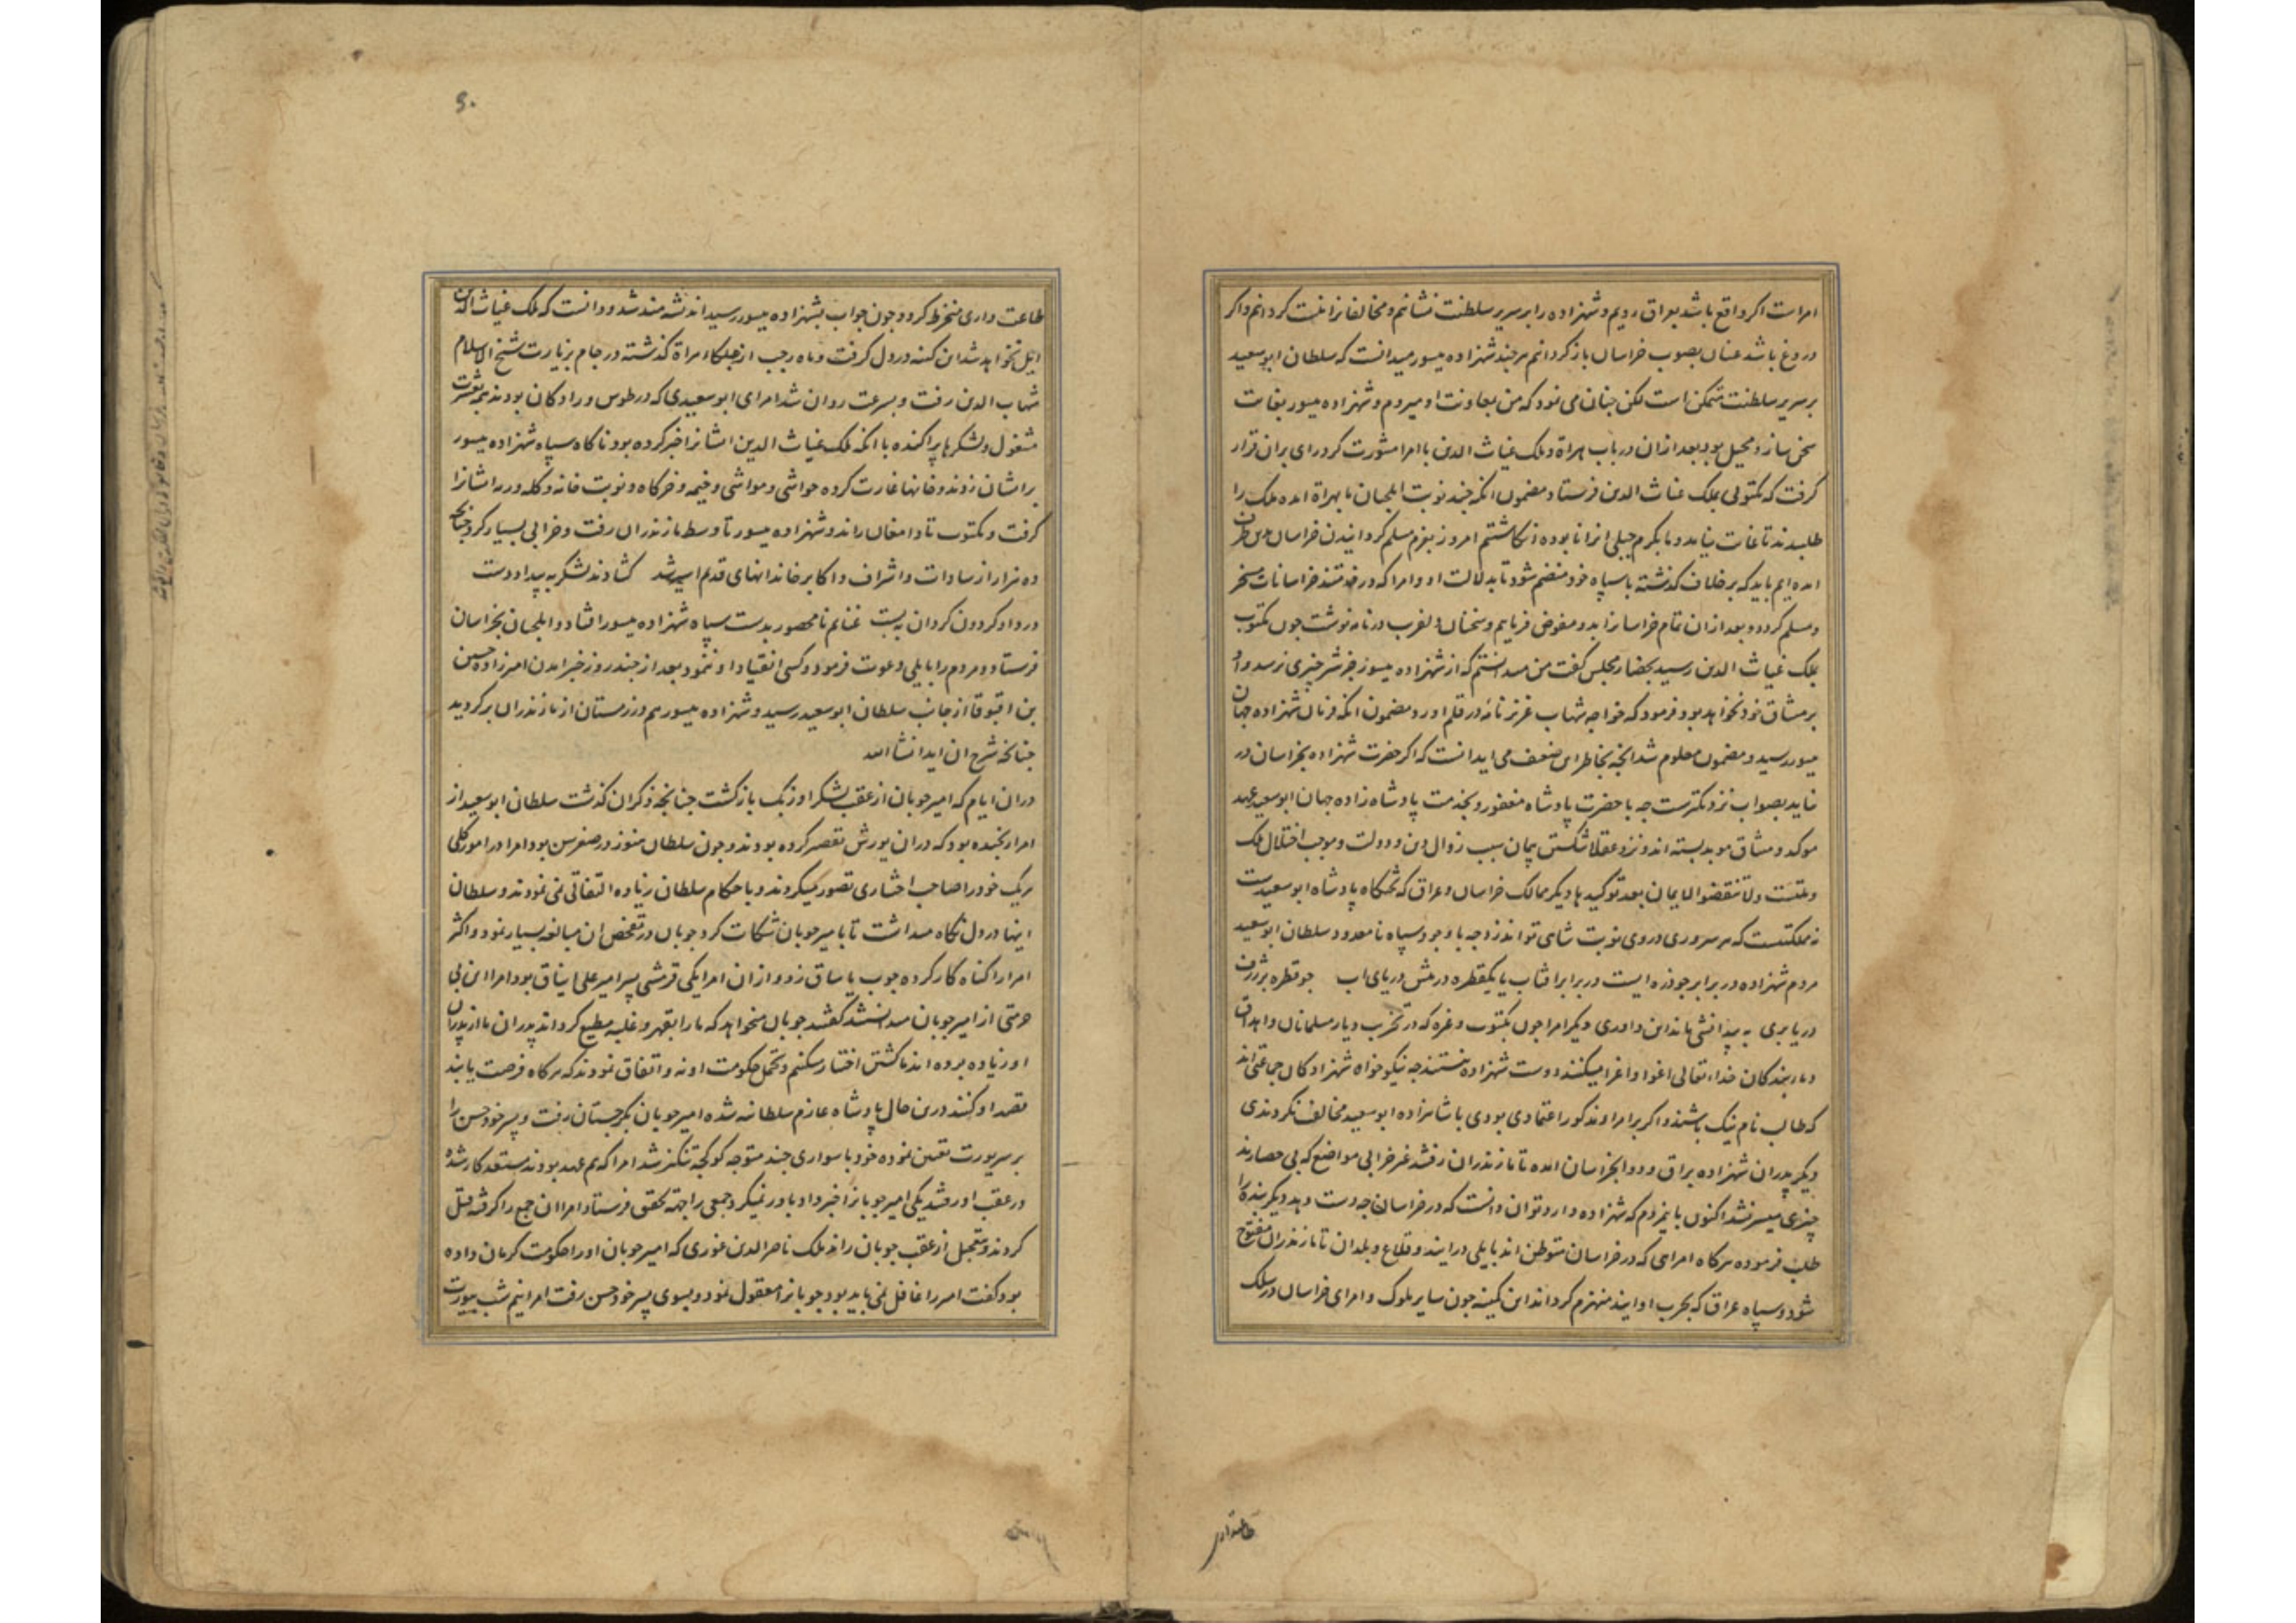 امراست اکر واقع باشد بعراق رویم و شهزاده را بر سریر سلطنت نشانیم و مخالفانرا نیست کردانیم و اکر
دروغ باشد عنان بصوب خراسان باز کردانیم هرچند شهزاده میسور میدانست که سلطان ابوسعید
بر سریر سلطنت متمکن است لکن جنان می نمود که من بمعاونت او میروم و شهزاده میسور بغایت
سخن ساز و محیل بود بعد ازان در باب هراة و ملک غیاث الدین با امرا مشورت کرد رای بران قرار
کرفت که مکتوبی بملک غیاث الدین فرستاد مضمون انکه جند نوبت ایلجیان بهراة امده ملک را
طلبیدند تا غایت نیامد و ما بکرم جبلی انرا نابوده انکاشتیم امروز بعزم مسلم کردانیدن خراسان
امده ایم باید که بر خلاف کذشته با سپاه خود منضم شود تا بدلالت او و امرا که در خراسانات مسخر
و مسلم کردد و بعد ازان تمام خراسانرا بدو مفوض فرماییم و سخنان دلفریب در نامه نوشت جون مکتوب
بملک غیاث الدین رسید بحضار مجلس کفت من میدانستم که از شهزاده میسور جز شر جیزی نرسد و او
بر میثاق خود نخواهد بود فرمود که خواجه شهاب عزیز نامه در قلم اورد مضمون انکه فرمان شهزاده جهان
میسور رسید و مضمون معلوم شد انجه بخاطر این ضعیف می اید انست که اکر حضرت شهزاده بخراسان در
نیاید بصواب نزدیکترست جه با حضرت پادشاه مغفور و بخدمت پادشاه زاده جهان ابوسعید عهد
موکد و میثاق موبد بسته اند و نزد عقلا شکستن پیمان سبب زوال دین و دولت و موجب اختلال ملک
و ملتست ولا تنقضوا الایمان بعد توکیدها دیکر ممالک خراسان و عراق که تختکاه پادشاه ابوسعیدست
نه مملکتیست که هر سروری دروی نوبت شاهی تواند زد جه با وجود سپاه نامعدود سلطان ابوسعید
مردم شهزاده در برابر جو ذره ایست در برابر افتاب یا یکقطره در پیش دریای اب جو قطره بر ژرف
دریا بری به پیدانشی ماند این داوری دیکر امرا جون بکتوب و غیره که در تخریب دیار مسلمانان و اهلاک
بندکان خداء تعالی اغوا و اغرا میکنند دوست شهزاده نیستند جه نیکوخواه شهزادکان جماعتی اند
که طالب نام نیک باشند و اکر بر امراء مذکور اعتمادی بودی با شاهزاده ابوسعید مخالف نکردندی
دیکر پدران شهزاده براق و دوا بخراسان امده تا مازندران رفتند غیر خرابی مواضع که بی حصارند
جیزی میسر نشد اکنون باینمردم که شهزاده دارد توان دانست که در خراسان جه دست دهد دیکر بنده را
طلب فرموده هرکاه امرایی که در خراسان متوطن اند بایلی درایند و قلاع و بلدان تا مازندران مفتوح
شود و سپاه عراق که بحرب او ایند منهزم کرداند این کمینه جون سایر ملوک و امرای خراسان در سلک
طاعتداری
۶۰
طاعت داری منخرط کردد جون جواب بشهزاده میسور رسید اندیشه مند شد و دانست که ملک غیاث الدین
ایل نخواهد شد این کینه در دل کرفت و ماه رجب از جلکاء هراة کذشته در جام بزیارت شیخ الاسلام
شهاب الدین رفت و بسرعت روان شد امرای ابوسعیدی که در طوس و رادکان بودند بعشرت
مشغول و لشکرها پراکنده با انکه ملک غیاث الدین ایشانرا خبر کرده بود ناکاه سپاه شهزاده میسور
بر ایشان زدند و خانها غارت کرده حواشی و مواشی و خیمه و خرکاه و نوبت خانه و کله و رمه ایشانرا
کرفت و بکتوب تا دامغان راند و شهزاده میسور تا وسط مازندران رفت و خرابی بسیار کرد جنانجه
ده هزار از سادات و اشراف و اکابر خاندانهای قدیم اسیر شد کشادند لشکر به بیداد دست
در داد کردون کردان به بست غنایم نامحصور بدست سپاه شهزاده میسور افتاد و ایلجیان بخراسان
فرستاد و مردم را بایلی دعوت فرمود و کسی انقیاد او ننمود بعد از جند روز خبر امدن امیرزاده حسین
بن اقبوقا از جانب سلطان ابوسعید رسید و شهزاده میسور هم در زمستان از مازندران برکردید
جنانجه شرح ان اید انشاالله
دران ایام که امیر جوبان از عقب لشکر اوزبک بازکشت جنانجه ذکر ان کذشت سلطان ابوسعید از
امرا رنجیده بود که دران یورش تقصیر کرده بودند و جون سلطان هنوز در صغر سن بود امرا در امور کلی
هریک خود را صاحب اختیاری تصور میکردند و باحکام سلطان زیاده التفاتی نمی نمودند و سلطان
اینها در دل نکاه میداشت تا با میر جوبان شکایت کرد جوبان در تفحص ان مبالغه بسیار نمود و اکثر
امرا را کناه کار کرده جوب یاساق زد و ازان امرا یکی قرمشی پسر امیر علی ایناق بود امرا این بی
حرمتی از امیر جوبان میدانستند کفتند جوبان میخواهد که ما را بقهر و غلبه مطیع کرداند پدران ما از پدران
او زیاده بوده اند ما کشتن اختیار میکنیم و تحمل حکومت او نه و اتفاق نمودند که هرکاه فرصت یابند
قصد او کنند درین حال پادشاه عازم سلطانیه شده امیر جوبان بکرجستان رفت و پسر خود حسن را
بر سر یورت تعیین نموده خود با سواری جند متوجه کوکجه تنکیز شد امرا که هم عهد بودند مستعد کار شده
در عقب او رفتند یکی امیر جوبانرا خبر داد باور نمیکرد جمعی را بجهته تحقیق فرستاد امرا ان جمع را کرفته بقتل
کردند و بتعجیل از عقب جوبان راند ملک ناصرالدین غوری که امیر جوبان اورا حکومت کرمان داده
بود کفت امیر را غافل نمی باید بود جوبانرا معقول نمود و بسوی پسر خود حسن رفت امرا نیم شب بیورت